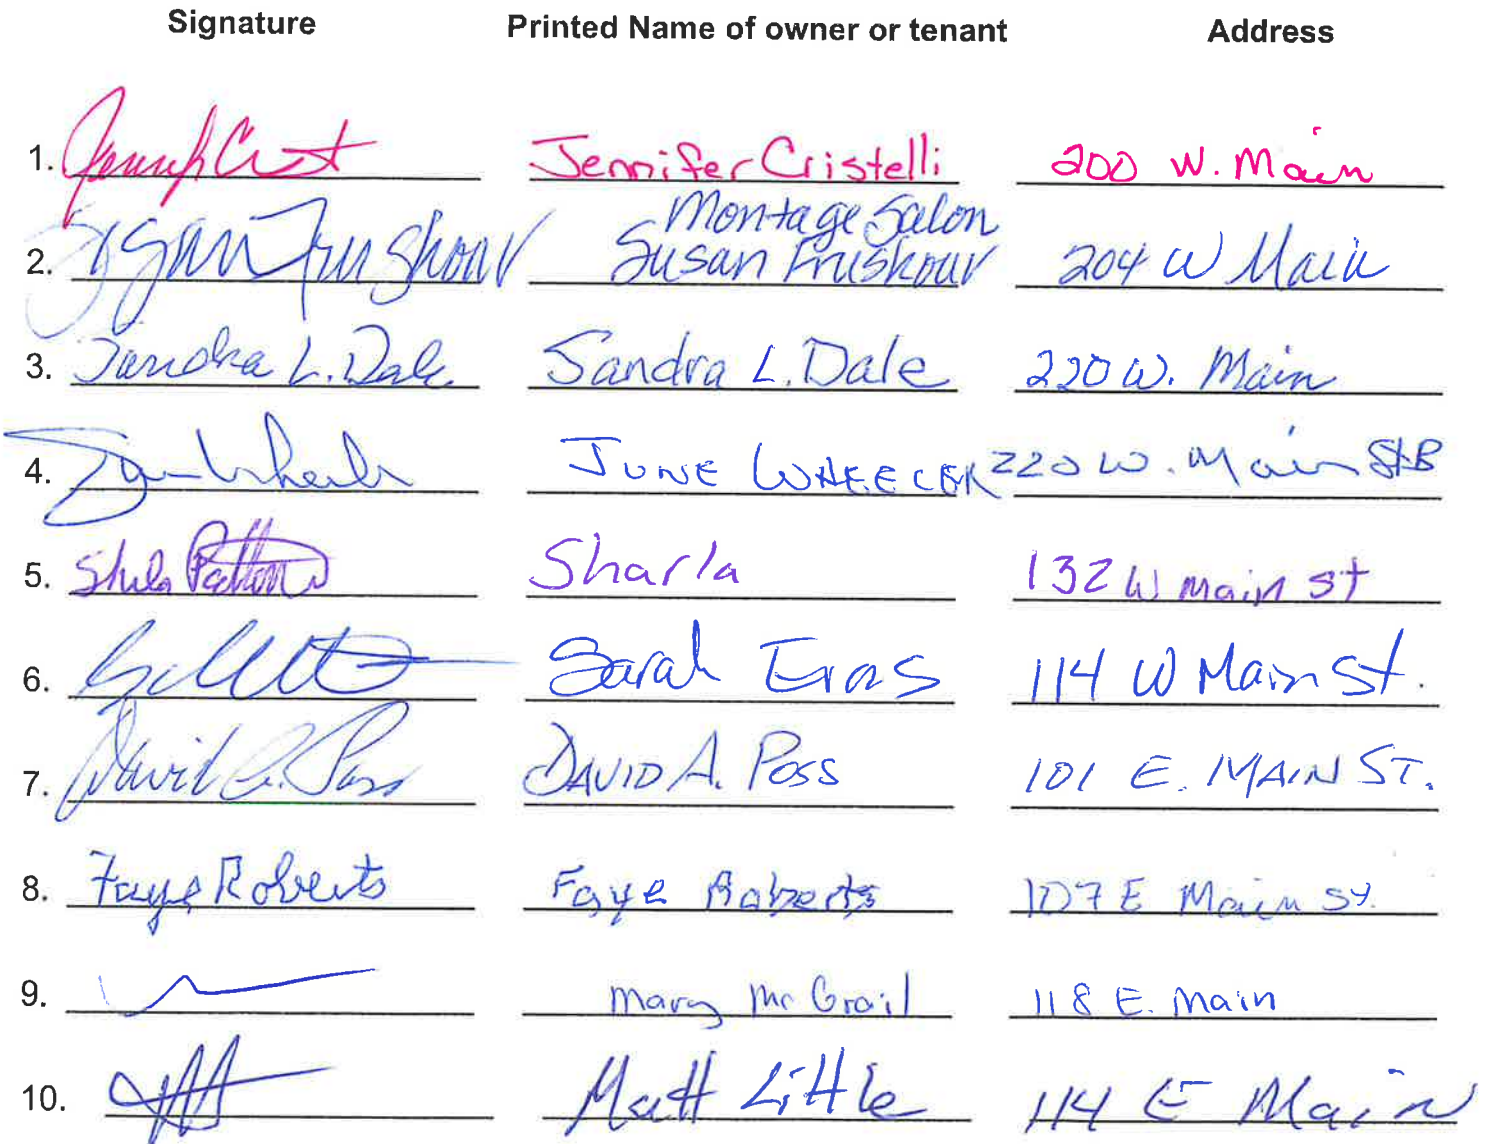 Signature Printed Name of owner or tenant Address
1. Jennifer Cristelli 200 W. Main
Montage Salon
2. Susan Fruskour Susan Fruskour 204 W Main
3. Sandra L. Dale Sandra L. Dale 220 W. Main
4. June Wheeler JUNE WHEELER 220 W. Main St B
5. Patton Sharla 132 W Main St
6. Sarah Eras 114 W Main St.
7. David A. Poss DAVID A. POSS 101 E. MAIN ST.
8. Faye Roberts Faye Roberts 107 E Main St.
9. Mary McGrail 118 E. Main
10. Matt Little 114 E Main